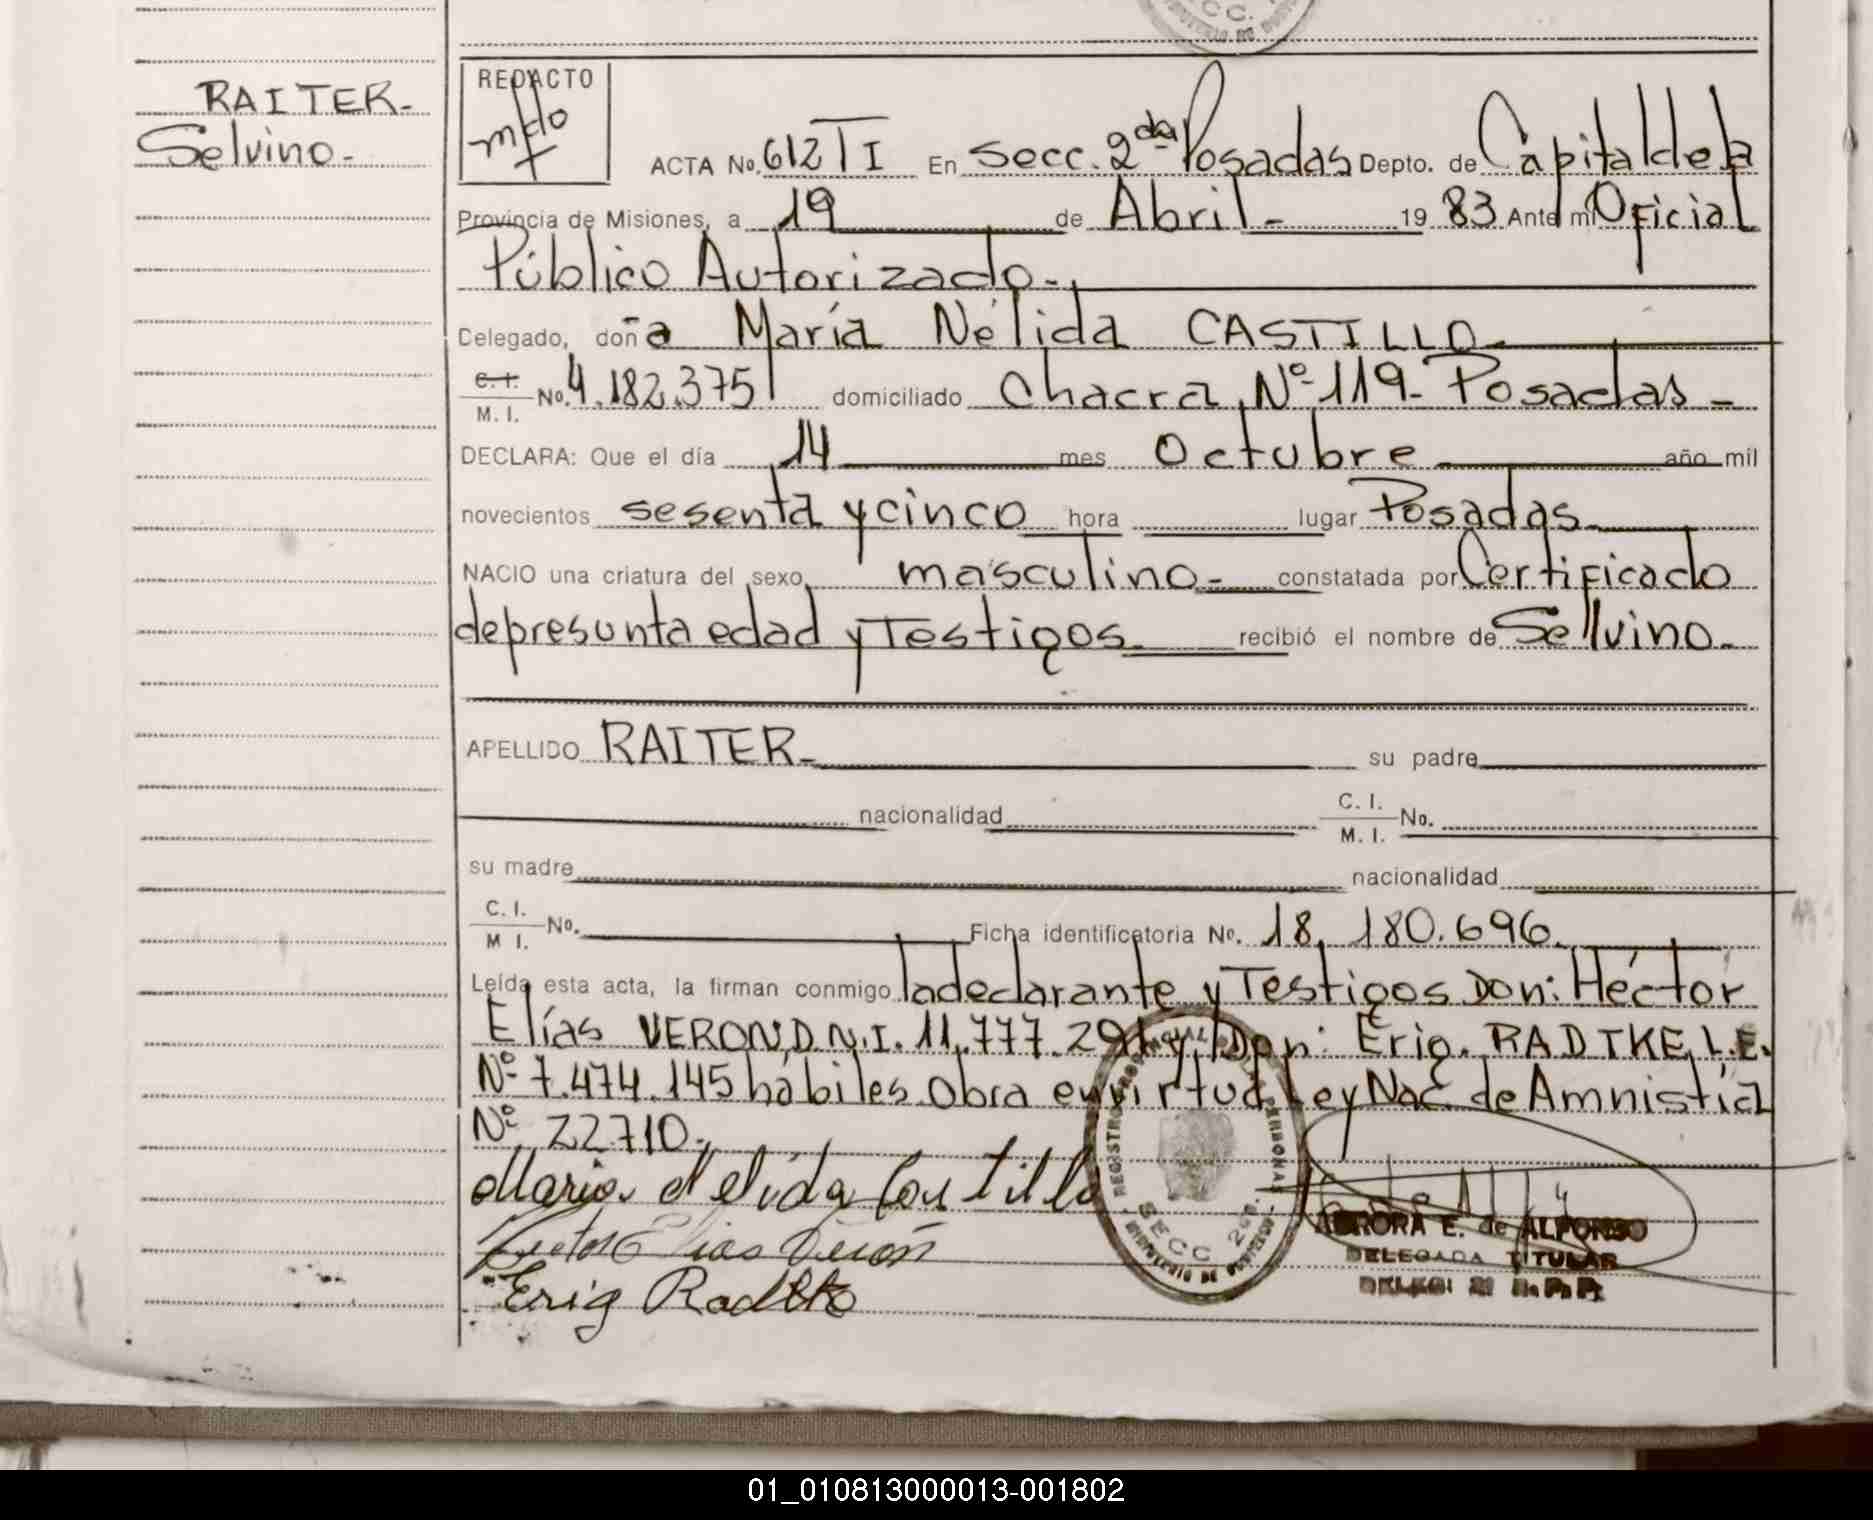 RAITER-
Selvino-
REDACTO
ACTA No. 612 TI En Secc. 2da Posadas Depto. de Capital de la
Provincia de Misiones, a 19 de Abril- 1983 Ante mi Oficial
Público Autorizado-
Delegado, doña María Nélida CASTILLO-
C.I. M.I. No. 4.182.375 domiciliado Chacra Nº 119- Posadas-
DECLARA: Que el día 14 mes Octubre año mil
novecientos sesenta y cinco hora lugar Posadas
NACIO una criatura del sexo masculino- constatada por Certificado
de presunta edad y Testigos recibió el nombre de Selvino-
APELLIDO RAITER- su padre
nacionalidad C. I. M. I. No.
su madre nacionalidad
C. I. M I. No. Ficha identificatoria No. 18.180.696
Leída esta acta, la firman conmigo la declarante y Testigos Don: Héctor
Elías VERON D.N.I. 11.777.291 y Don: Erig. RADTKE, L.E.
Nº 7.474.145 hábiles Obra en virtud Ley Nac. de Amnistía
Nº 22710.
Maria Nelida Castillo
Hector Elias Verón
Erig Radtke
REGISTRO PROVINCIAL DE LAS PERSONAS
SECC 2da.
AURORA E. de ALFONSO
DELEGADA TITULAR
01_010813000013-001802